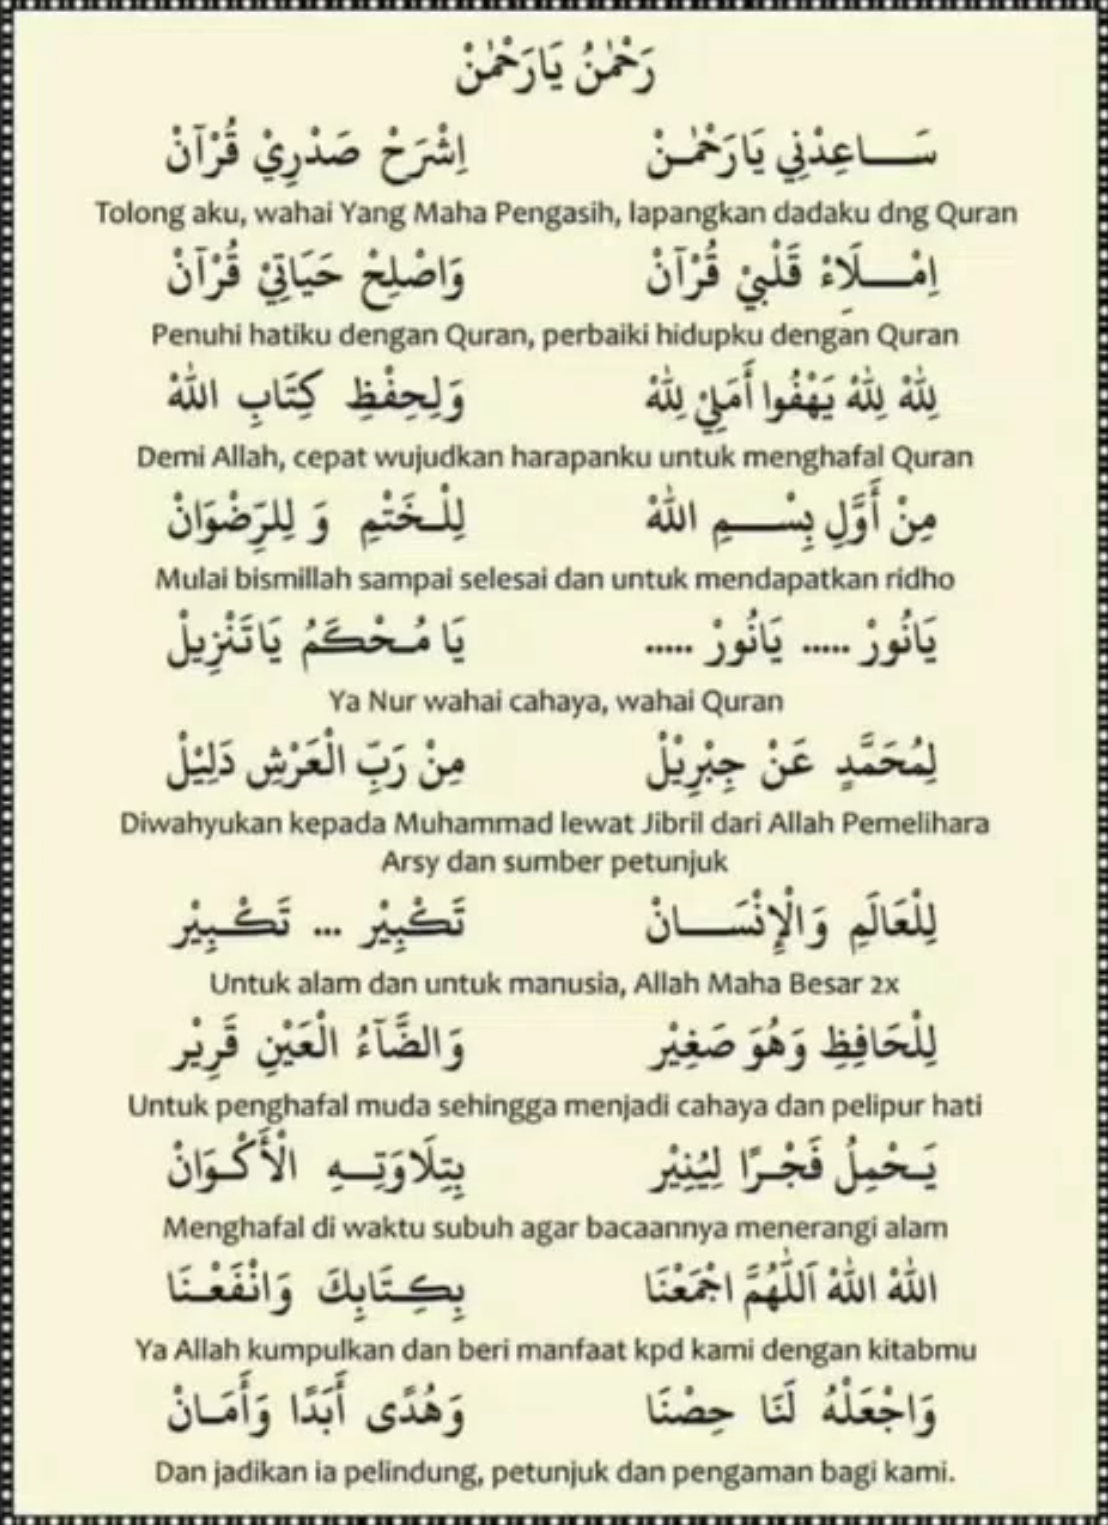 رَحْمٰنُ يَارَحْمٰنْ
سَـــاعِدْنِي يَارَحْمٰـنْ اِشْرَحْ صَدْرِيْ قُرْآنْ
Tolong aku, wahai Yang Maha Pengasih, lapangkan dadaku dng Quran
اِمْـــلَاءْ قَلْبِيْ قُرْآنْ وَاصْلِحْ حَيَاتِيْ قُرْآنْ
Penuhi hatiku dengan Quran, perbaiki hidupku dengan Quran
لِلّٰهْ لِلّٰهْ يَهْفُوا أَمَلِيْ لِلّٰهْ وَلِحِفْظِ كِتَابِ اللّٰهْ
Demi Allah, cepat wujudkan harapanku untuk menghafal Quran
مِنْ أَوَّلِ بِسْـــمِ اللّٰهْ لِلْـخَتْمِ وَ لِلرِّضْوَانْ
Mulai bismillah sampai selesai dan untuk mendapatkan ridho
يَانُورْ ..... يَانُورْ ..... يَا مُـحْكَمُ يَاتَنْزِيلْ
Ya Nur wahai cahaya, wahai Quran
لِمُحَمَّدٍ عَنْ جِبْرِيْلْ مِنْ رَبِّ الْعَرْشِ دَلِيْلْ
Diwahyukan kepada Muhammad lewat Jibril dari Allah Pemelihara
Arsy dan sumber petunjuk
لِلْعَالَمِ وَالْإِنْسَـــانْ تَكْبِيْر ... تَكْـبِيْر
Untuk alam dan untuk manusia, Allah Maha Besar 2x
لِلْحَافِظِ وَهُوَ صَغِيْر وَالضَّآءُ الْعَيْنِ قَرِيْر
Untuk penghafal muda sehingga menjadi cahaya dan pelipur hati
يَـحْمِلُ فَجْـرًا لِيُنِيْر بِتِلَاوَتِـهِ الْأَكْـوَانْ
Menghafal di waktu subuh agar bacaannya menerangi alam
اللّٰهْ اللّٰهْ اَللّٰهُمَّ اجْمَعْنَا بِكِـتَابِكَ وَانْفَعْـنَا
Ya Allah kumpulkan dan beri manfaat kpd kami dengan kitabmu
وَاجْعَلْهُ لَنَا حِصْنَا وَهُدًى أَبَدًا وَأَمَـانْ
Dan jadikan ia pelindung, petunjuk dan pengaman bagi kami.